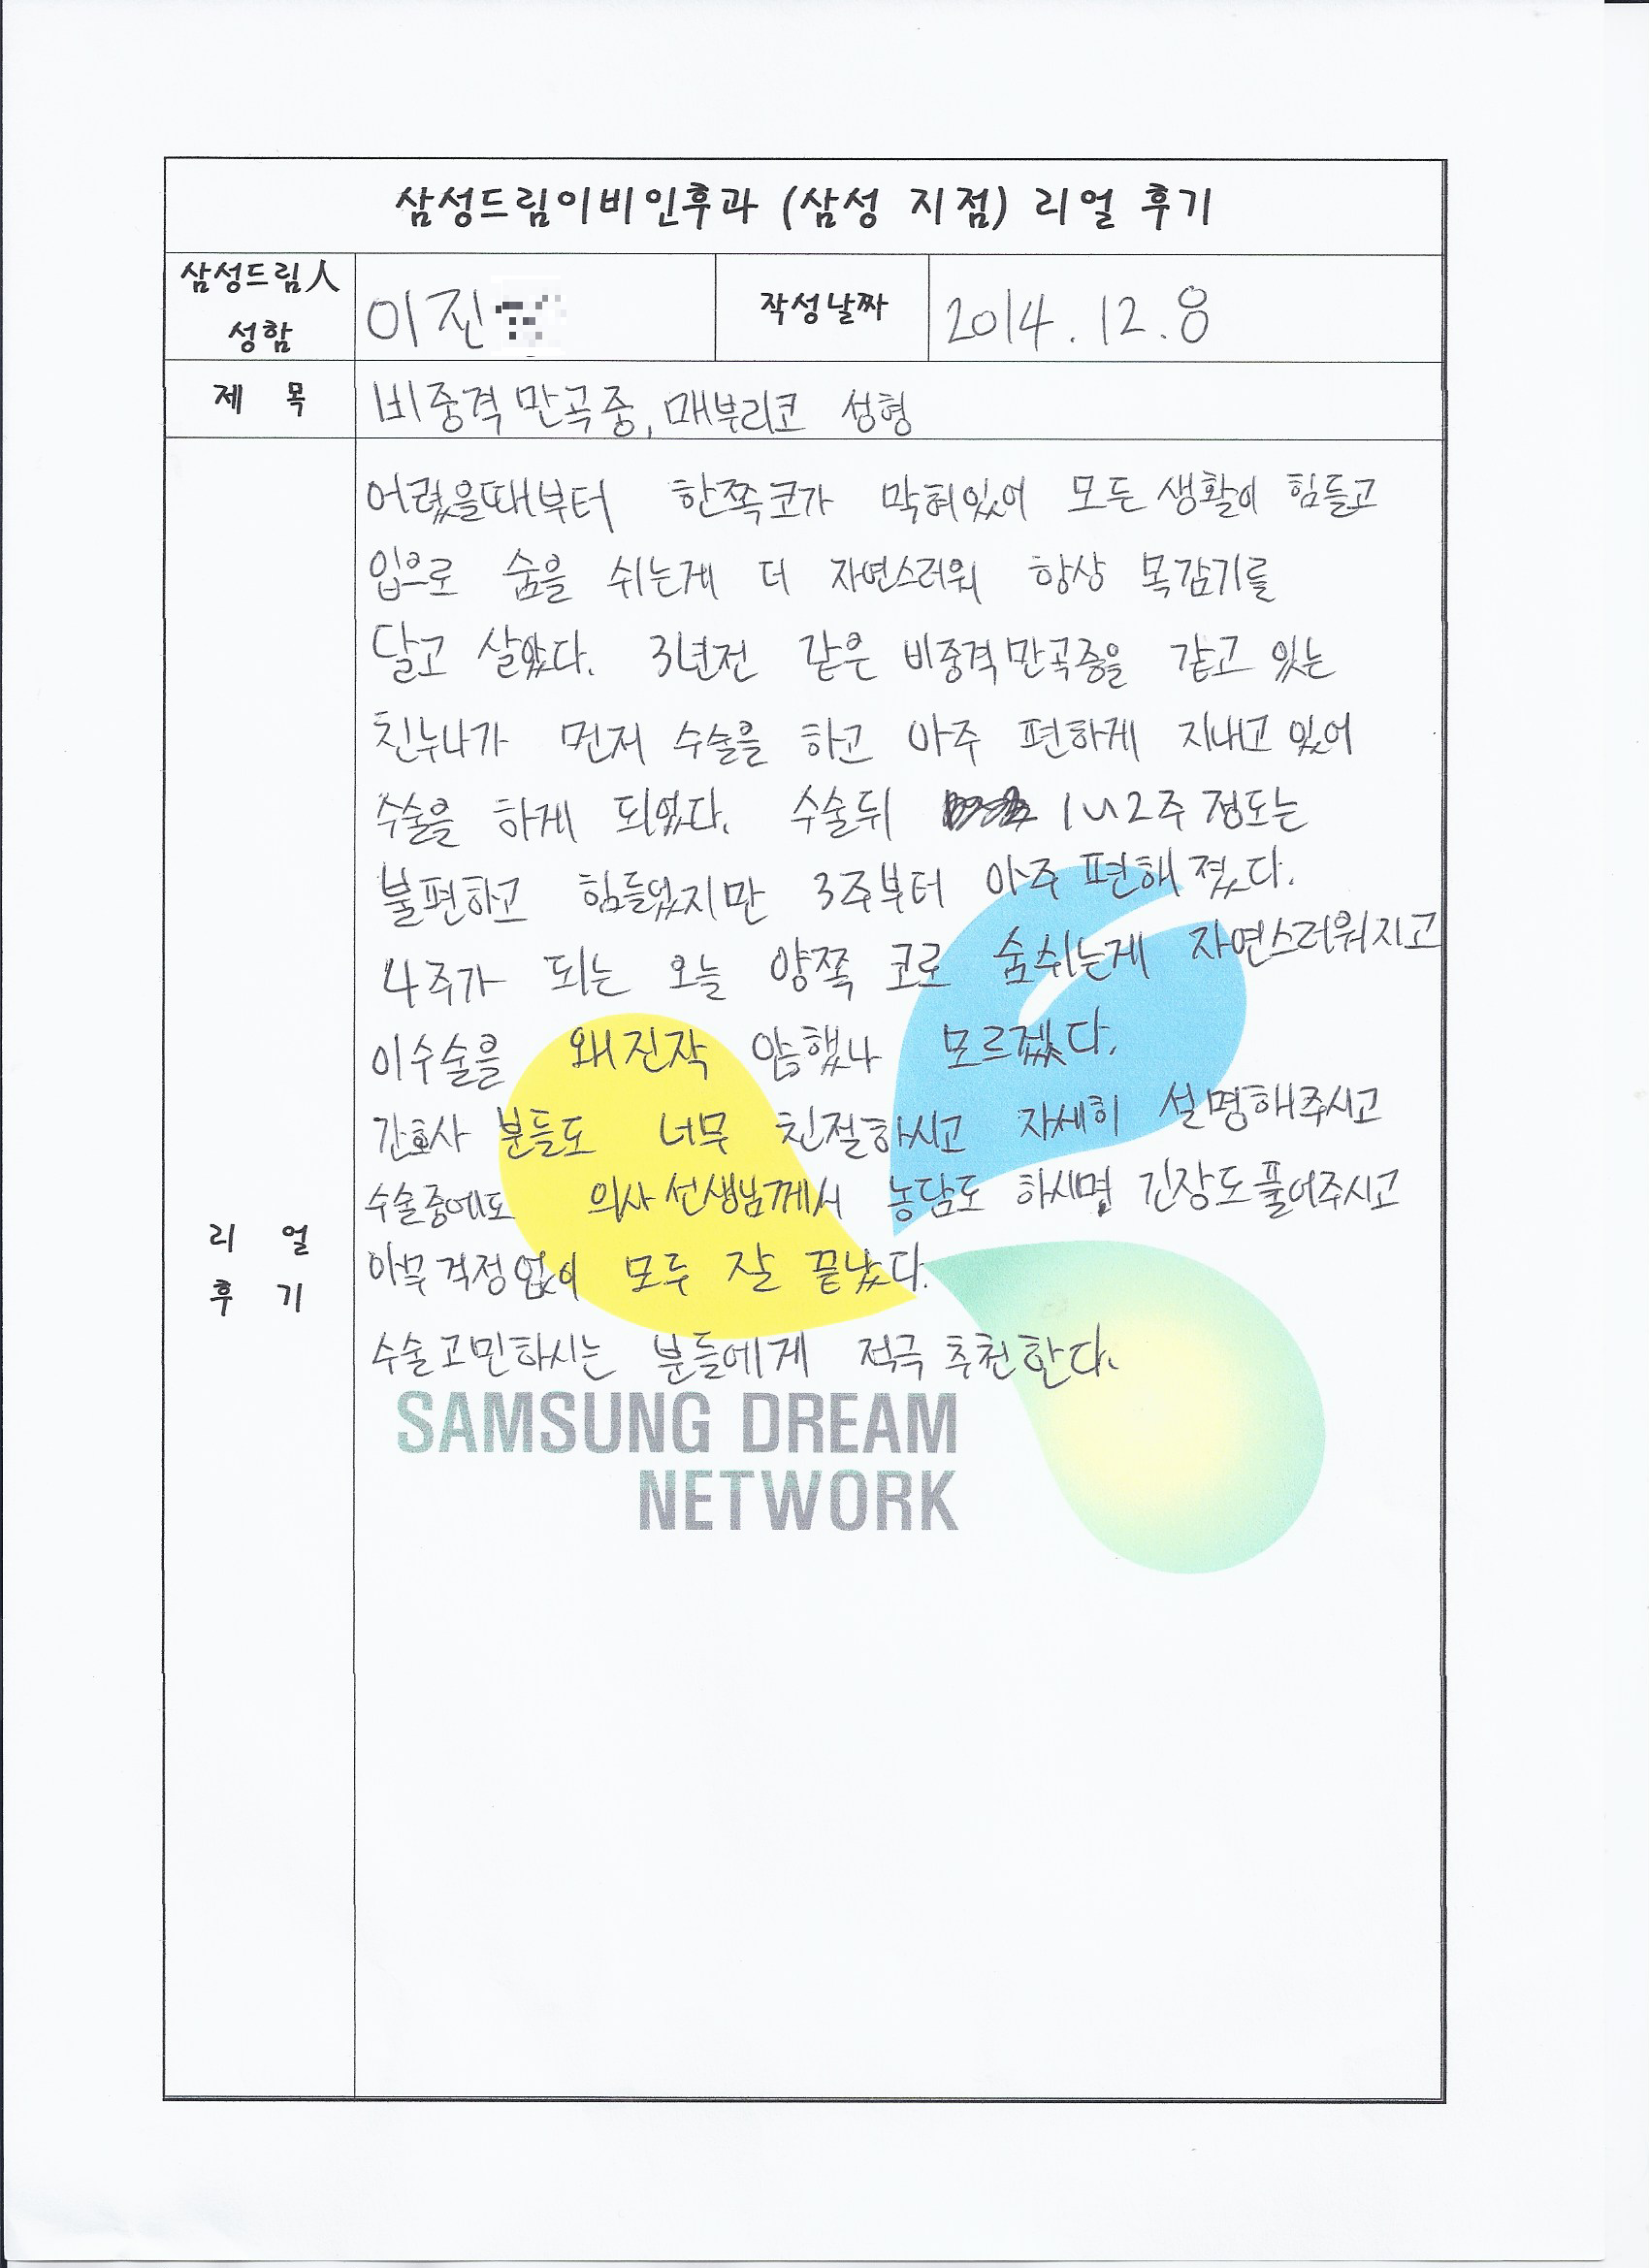 삼성드림이비인후과 (삼성 지점) 리얼 후기
삼성드림人
성함
이진
작성날짜
2014.12.8
제 목
비중격만곡증, 매부리코 성형
어렸을때부터 한쪽코가 막혀있어 모든 생활이 힘들고
입으로 숨을 쉬는게 더 자연스러워 항상 목감기를
달고 살았다. 3년전 같은 비중격만곡증을 같고 있는
친누나가 먼저 수술을 하고 아주 편하게 지내고 있어
수술을 하게 되었다. 수술뒤 1~2주 정도는
불편하고 힘들었지만 3주부터 아주 편해졌다.
4주가 되는 오늘 양쪽 코로 숨쉬는게 자연스러워지고
이수술을 왜진작 안했나 모르겠다.
간호사 분들도 너무 친절하시고 자세히 설명해주시고
수술중에도 의사선생님께서 농담도 하시며 긴장도풀어주시고
아무걱정없이 모두 잘 끝났다.
수술고민하시는 분들에게 적극 추천한다.
리 얼
후 기
SAMSUNG DREAM
NETWORK